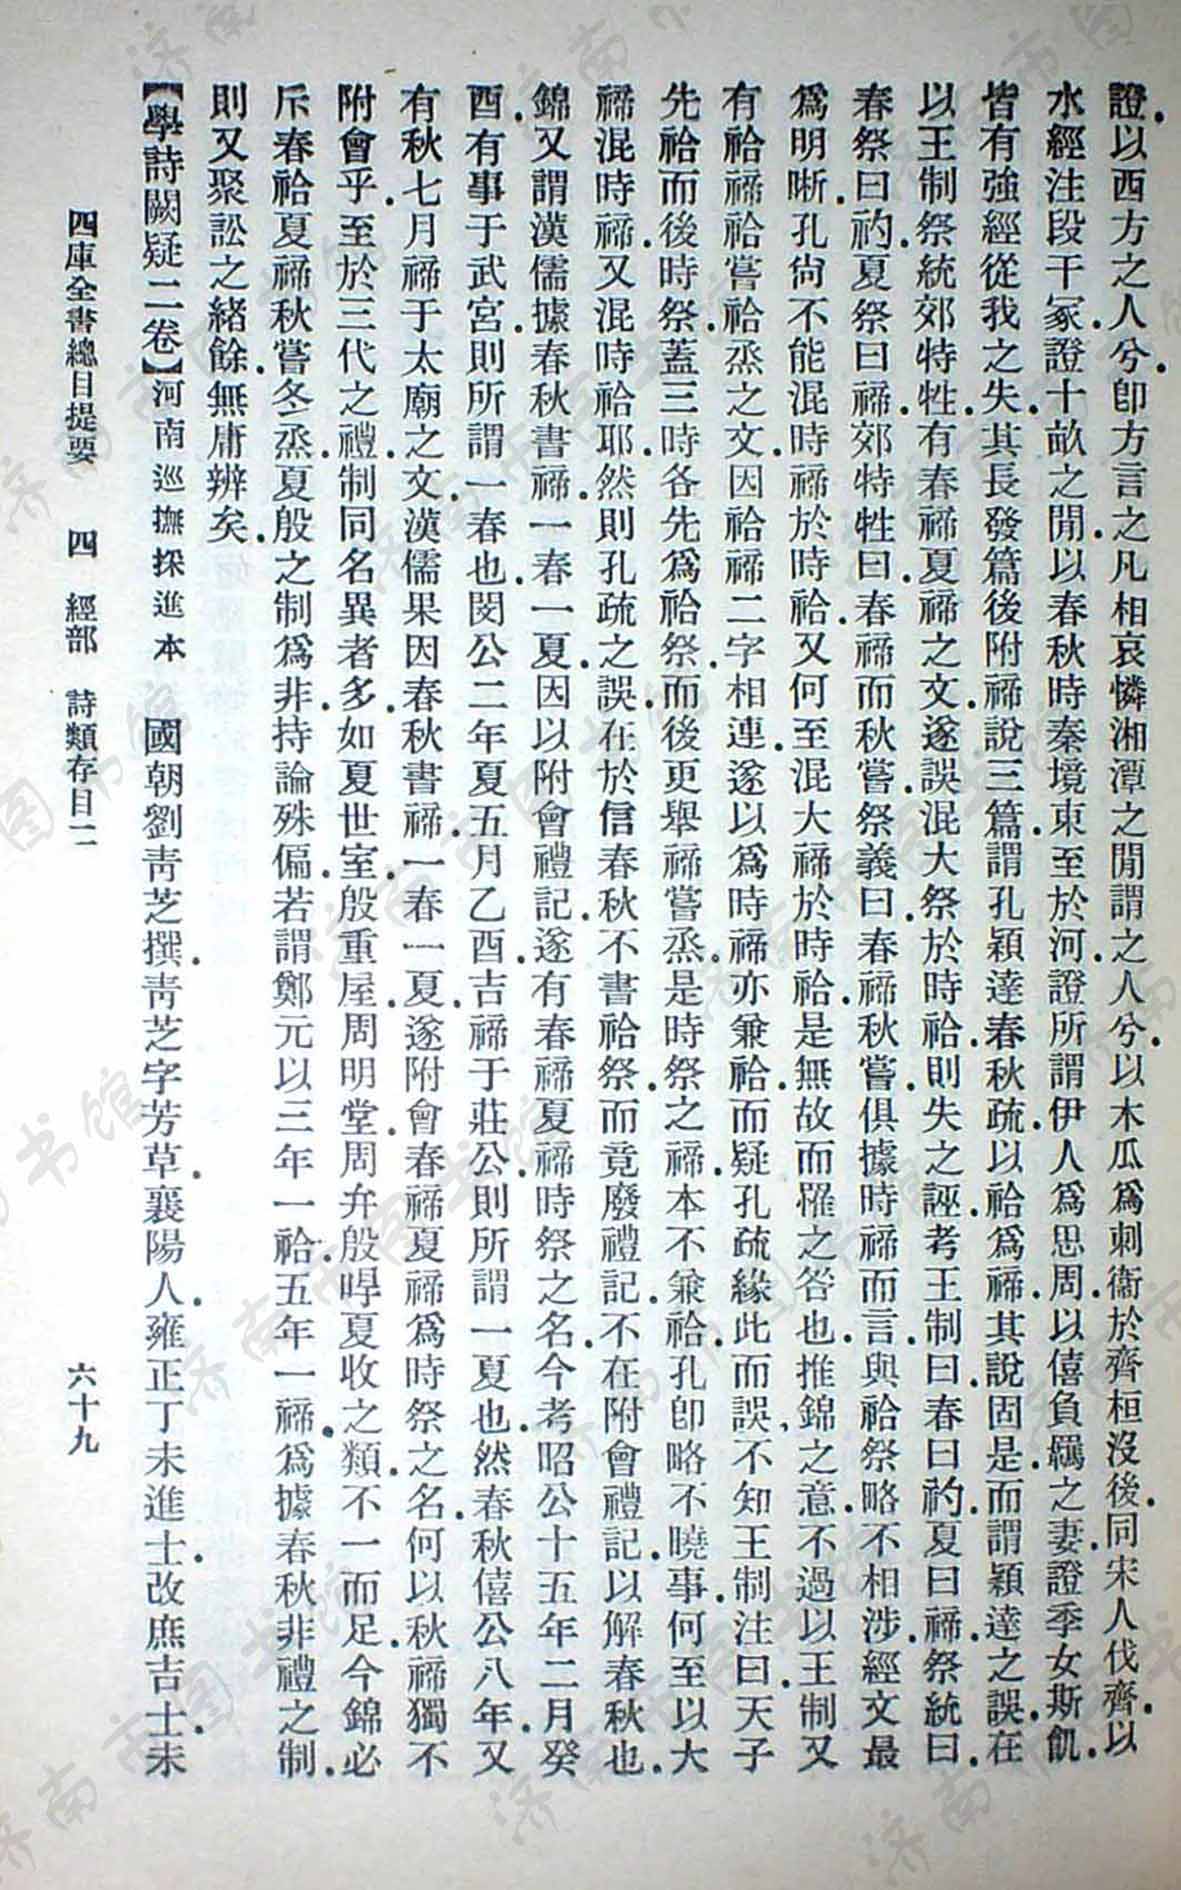 證以西方之人兮卽方言之凡相哀憐湘潭之閒謂之人兮以木瓜爲刺衞於齊桓沒後同宋人伐齊以
水經注段干冢證十畝之閒以春秋時秦境東至於河證所謂伊人爲思周以僖負羈之妻證季女斯飢
皆有強經從我之失其長發篇後附禘說三篇謂孔穎達春秋疏以祫爲禘其說固是而謂穎達之誤在
以王制祭統郊特牲有春禘夏禘之文遂誤混大祭於時祫則失之誣考王制曰春曰礿夏曰禘祭統曰
春祭曰礿夏祭曰禘郊特牲曰春禘而秋嘗祭義曰春禘秋嘗俱據時禘而言與祫祭略不相涉經文最
爲明晰孔尙不能混時禘於時祫又何至混大禘於時祫是無故而罹之咎也推錦之意不過以王制又
有祫禘祫嘗祫烝之文因祫禘二字相連遂以爲時禘亦兼祫而疑孔疏緣此而誤不知王制注曰天子
先祫而後時祭蓋三時各先爲祫祭而後更舉禘嘗烝是時祭之禘本不兼祫孔卽略不曉事何至以大
禘混時禘又混時祫耶然則孔疏之誤在於信春秋不書祫祭而竟廢禮記不在附會禮記以解春秋也
錦又謂漢儒據春秋書禘一春一夏因以附會禮記遂有春禘夏禘時祭之名今考昭公十五年二月癸
酉有事于武宮則所謂一春也閔公二年夏五月乙酉吉禘于莊公則所謂一夏也然春秋僖公八年又
有秋七月禘于太廟之文漢儒果因春秋書禘一春一夏遂附會春禘夏禘爲時祭之名何以秋禘獨不
附會乎至於三代之禮制同名異者多如夏世室殷重屋周明堂周弁殷哻夏收之類不一而足今錦必
斥春祫夏禘秋嘗冬烝夏殷之制爲非持論殊偏若謂鄭元以三年一祫五年一禘爲據春秋非禮之制
則又聚訟之緒餘無庸辨矣
【學詩闕疑二卷】河南巡撫採進本 國朝劉靑芝撰靑芝字芳草襄陽人雍正丁未進士改庶吉士未
四庫全書總目提要 四 經部 詩類存目二 六十九